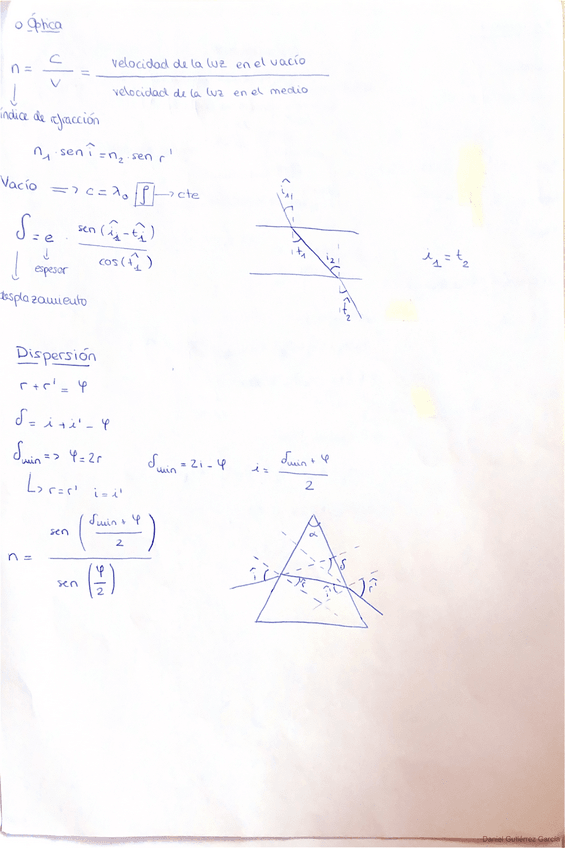 o Óptica
n = c / v = velocidad de la luz en el vacío / velocidad de la luz en el medio
índice de refracción
n₁ · sen î = n₂ · sen r'
Vacío => c = λ₀ f → cte
δ = e · sen (î₁ - t̂₁) / cos (t̂₁)
espesor
desplazamiento
î₁
t₁
i₂
t̂₂
i₁ = t₂
Dispersión
r + r' = φ
δ = i + i' - φ
δmin => φ = 2r
δmin = 2i - φ
i = δmin + φ / 2
↳ r = r' i = i'
n = sen (δmin + φ / 2) / sen (φ / 2)
α
δ
î
r̂
Daniel Gutiérrez García